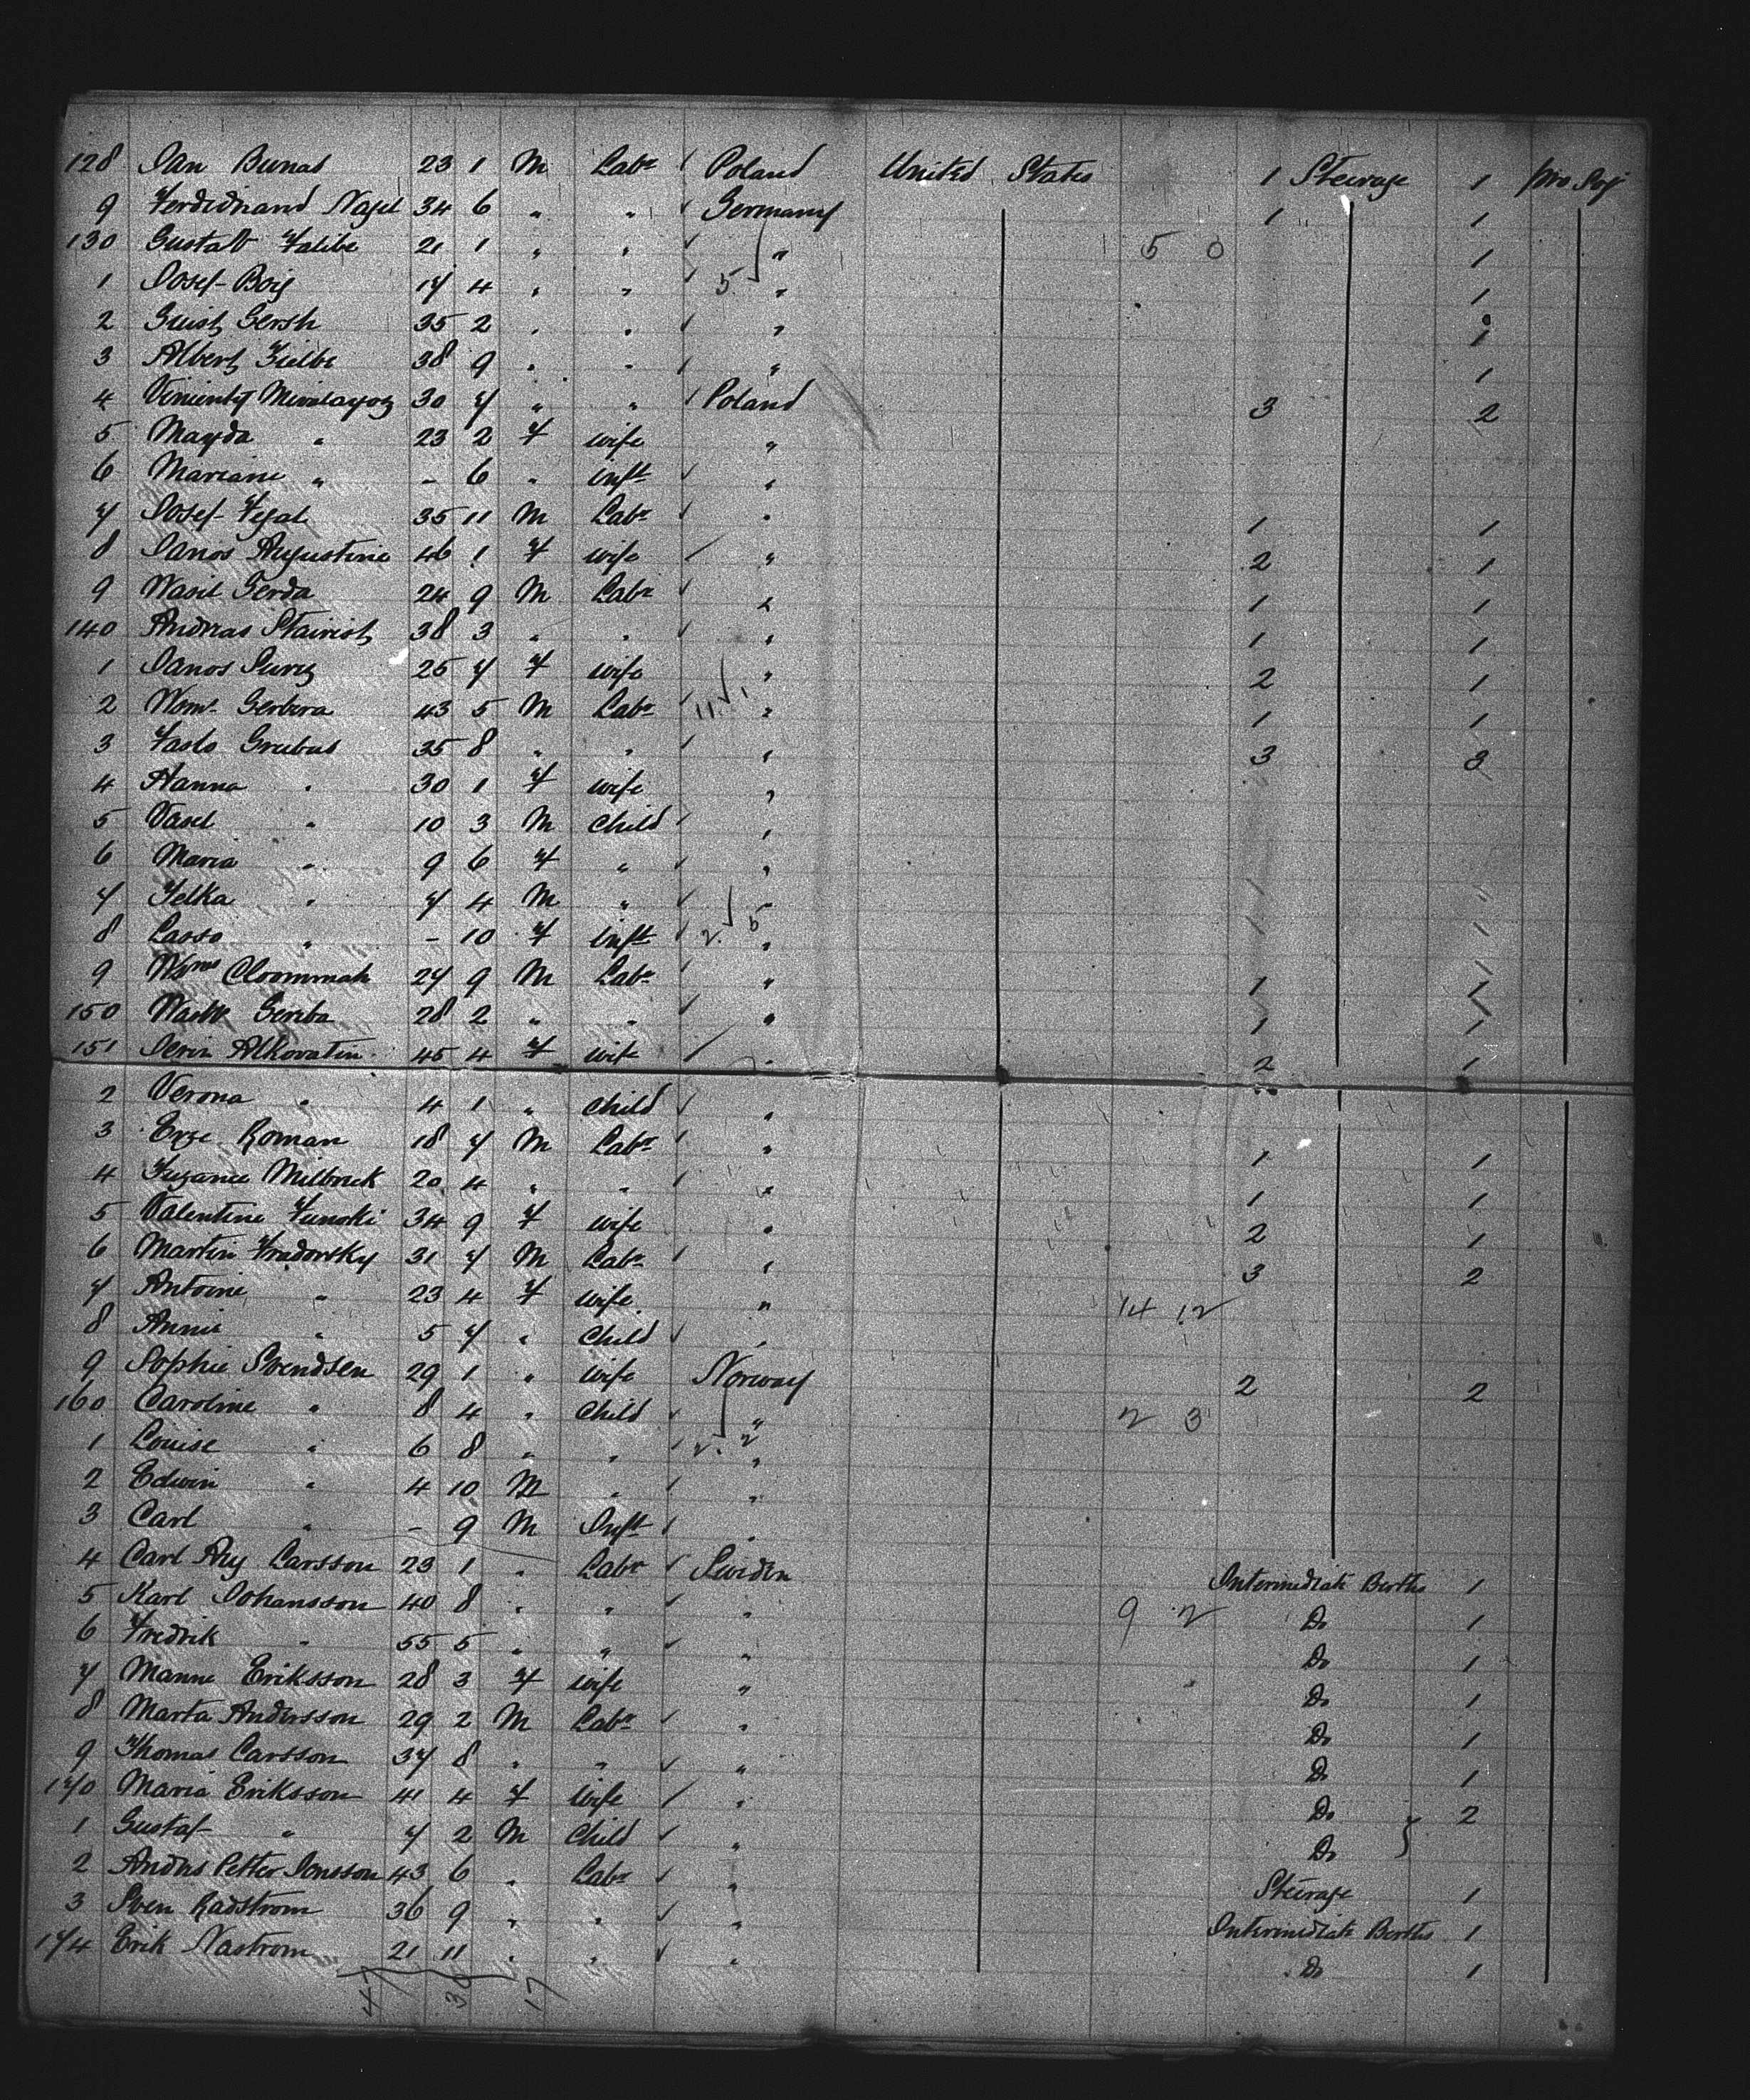 128 Jan Bunas 23 1 M Labr Poland United States 1 Steerage 1 pro Soj
9 Ferdidnand Nagel 34 6 " " Germany 1 1
130 Gustav Falibe 21 1 " " " 5 0 1
1 Josef Boig 17 4 " " 5 " 1
2 Gersh 35 2 " " " 1
3 Albert Zielbe 38 9 " " " 1
4 30 7 " " Poland 3 2
5 Magda " 23 2 F wife "
6 Mariane " - 6 " inft "
7 Josef Fegal 35 11 M Labr " 1 1
8 Janos Augustine 46 1 F wife " 2 1
9 Wasil Gerda 24 9 M Labr " 1 1
140 Andras 38 3 " " " 1 1
1 Janos 25 7 F wife " 2 1
2 Gerbera 43 5 M Labr 11 1 " 1 1
3 Grubus 35 8 " " " 3 3
4 Hanna " 30 1 F wife "
5 Vasel " 10 3 M Child "
6 Maria " 9 6 F " "
7 Jelka " 7 4 M " "
8 Lasso " - 10 F inft 2 5 "
9 Cloommah 27 9 M Labr " 1 1
150 Geriba 28 2 " " " 1 1
151 Alkovatin 45 4 F wife " 2 1
2 Verona " 4 1 " Child "
3 Erze Roman 18 7 M Labr " 1 1
4 Milbock 20 4 " " " 1 1
5 Valentine Funoki 34 9 F wife " 2 1
6 Martin Fradovsky 31 7 M Labr " 3 2
7 Antoine " 23 4 F wife " 14 12
8 Annie " 5 7 " Child "
9 Sophie Svendsen 29 1 " wife Norway 2 2
160 Caroline " 8 4 " Child " 2 3
1 Louise " 6 8 " " 2 2 "
2 Edwin " 4 10 M " "
3 Carl " - 9 M Inft "
4 Carl Aug Larsson 23 1 " Labr Sweden Intermediate Berths 1
5 Karl Johansson 40 8 " " " 9 2 Do 1
6 Fredrik " 55 5 " " " Do 1
7 Manne Eriksson 28 3 F wife " Do 1
8 Marta Andersson 29 2 M Labr " Do 1
9 Thomas Carsson 37 8 " " " Do 1
170 Maria Eriksson 41 4 F wife " Do 2
1 Gustaf " 7 2 M Child " Do
2 Andrs Petter Jonsson 43 6 " Labr " Steerage 1
3 Sven Radstrom 36 9 " " " Intermediate Berths 1
174 Erik Nastrom 21 11 " " " Do 1
47 30 17